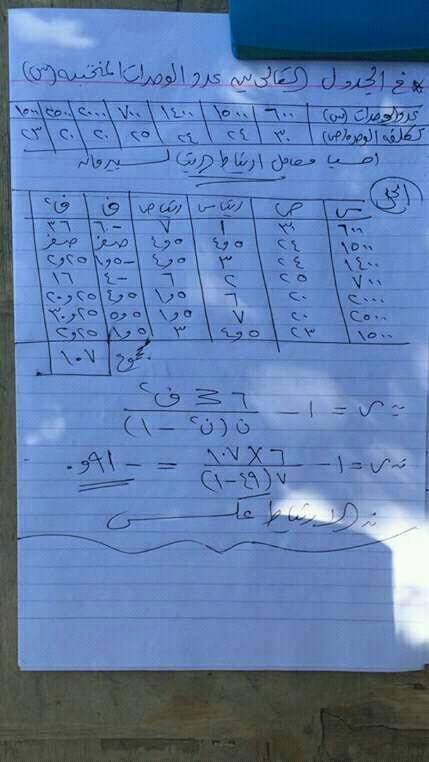 * في الجدول التالي بين عدد الوحدات المنتجة (س)
عدد الوحدات (س) ٦٠٠ ١٥٠٠ ١٤٠٠ ٧٠٠ ٢٠٠٠ ٢٥٠٠ ١٥٠٠
تكلفة الوحدة (ص) ٣٠ ٢٤ ٢٤ ٢٥ ٢٠ ٢٠ ٢٣
احسب معامل ارتباط الرتب لسبيرمان
الحل
س ص رتب س رتب ص ف ف٢
٦٠٠ ٣٠ ١ ٧ -٦ ٣٦
١٥٠٠ ٢٤ ٤و٥ ٤و٥ صفر صفر
١٤٠٠ ٢٤ ٣ ٤و٥ -١و٥ ٢و٢٥
٧٠٠ ٢٥ ٢ ٦ -٤ ١٦
٢٠٠٠ ٢٠ ٦ ١و٥ ٤و٥ ٢٠و٢٥
٢٥٠٠ ٢٠ ٧ ١و٥ ٥و٥ ٣٠و٢٥
١٥٠٠ ٢٣ ٤و٥ ٣ ١و٥ ٢و٢٥
مجموع ١٠٧
∴ ر = ١ - ٦ ∑ ف٢ / ن (ن٢ - ١)
∴ ر = ١ - ٦ × ١٠٧ / ٧ (٤٩ - ١) = - ٩١و٠
∴ الارتباط عكسي